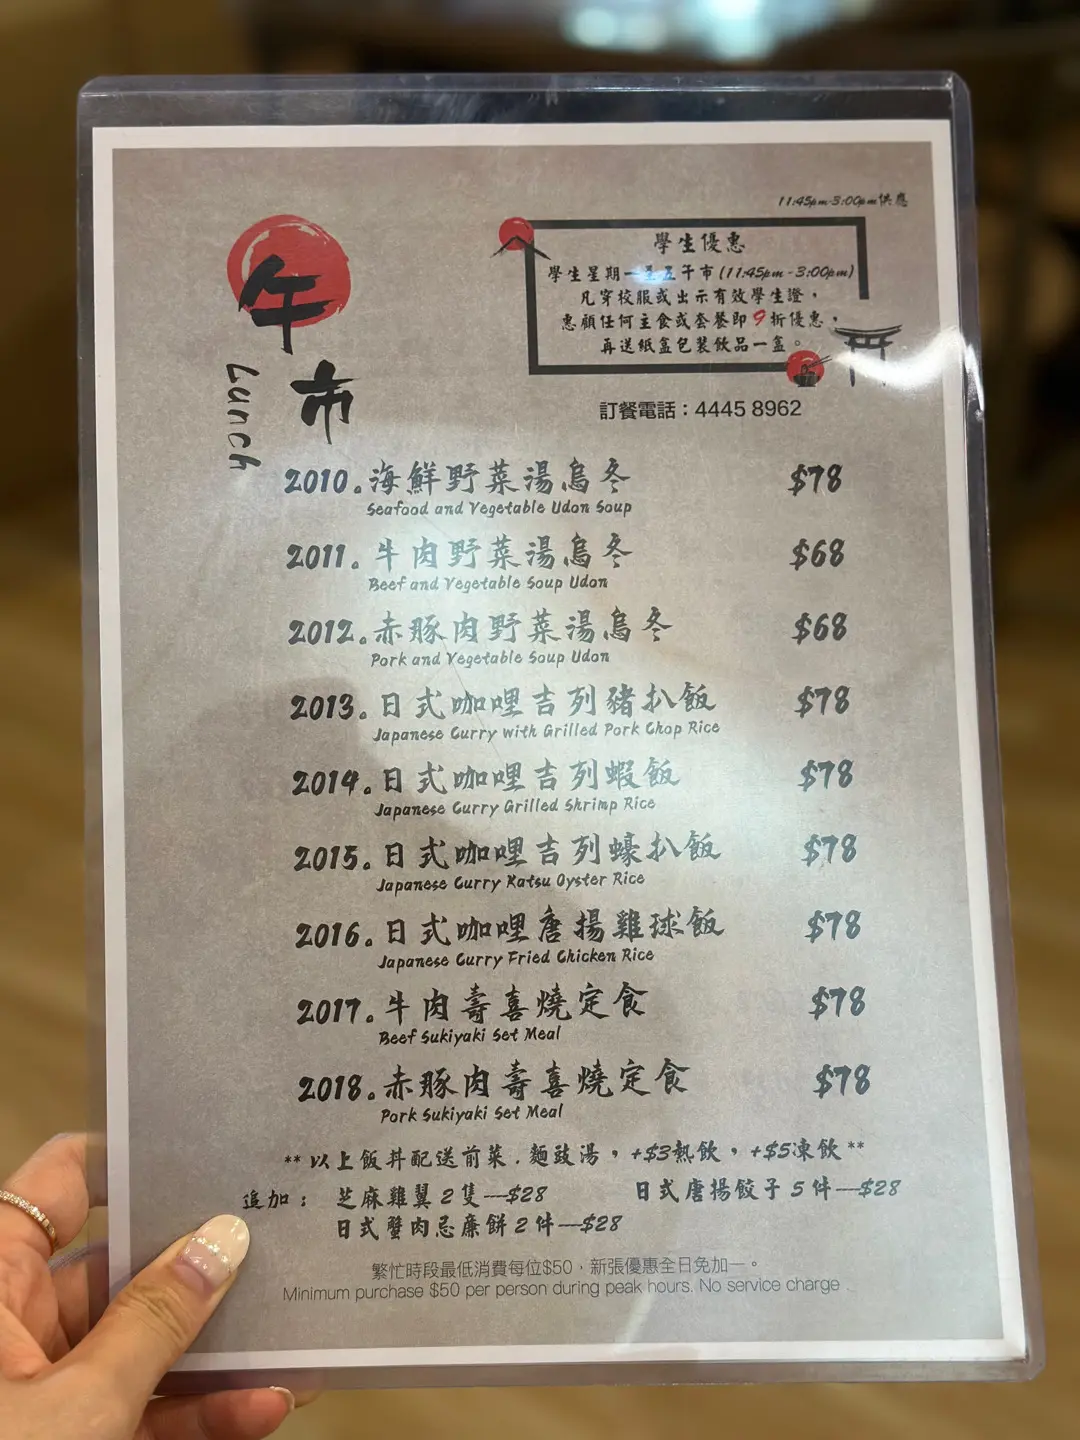 11:45pm-3:00pm供應
午市
Lunch
學生優惠
學生星期一至五午市(11:45pm-3:00pm)
凡穿校服或出示有效學生證，
惠顧任何主食或套餐即9折優惠，
再送紙盒包裝飲品一盒。
訂餐電話：4445 8962
2010。海鮮野菜湯烏冬 $78
Seafood and Vegetable Udon Soup
2011。牛肉野菜湯烏冬 $68
Beef and Vegetable Soup Udon
2012。赤豚肉野菜湯烏冬 $68
Pork and Vegetable Soup Udon
2013。日式咖哩吉列豬扒飯 $78
Japanese Curry with Grilled Pork Chop Rice
2014。日式咖哩吉列蝦飯 $78
Japanese Curry Grilled Shrimp Rice
2015。日式咖哩吉列蠔扒飯 $78
Japanese Curry Katsu Oyster Rice
2016。日式咖哩唐揚雞球飯 $78
Japanese Curry Fried Chicken Rice
2017。牛肉壽喜燒定食 $78
Beef Sukiyaki Set Meal
2018。赤豚肉壽喜燒定食 $78
Pork Sukiyaki Set Meal
**以上飯丼配送前菜．麵豉湯，+$3熱飲，+$5凍飲**
追加： 芝麻雞翼2隻—$28 日式唐揚餃子5件—$28
日式蟹肉忌廉餅2件—$28
繁忙時段最低消費每位$50，新張優惠全日免加一。
Minimum purchase $50 per person during peak hours. No service charge .